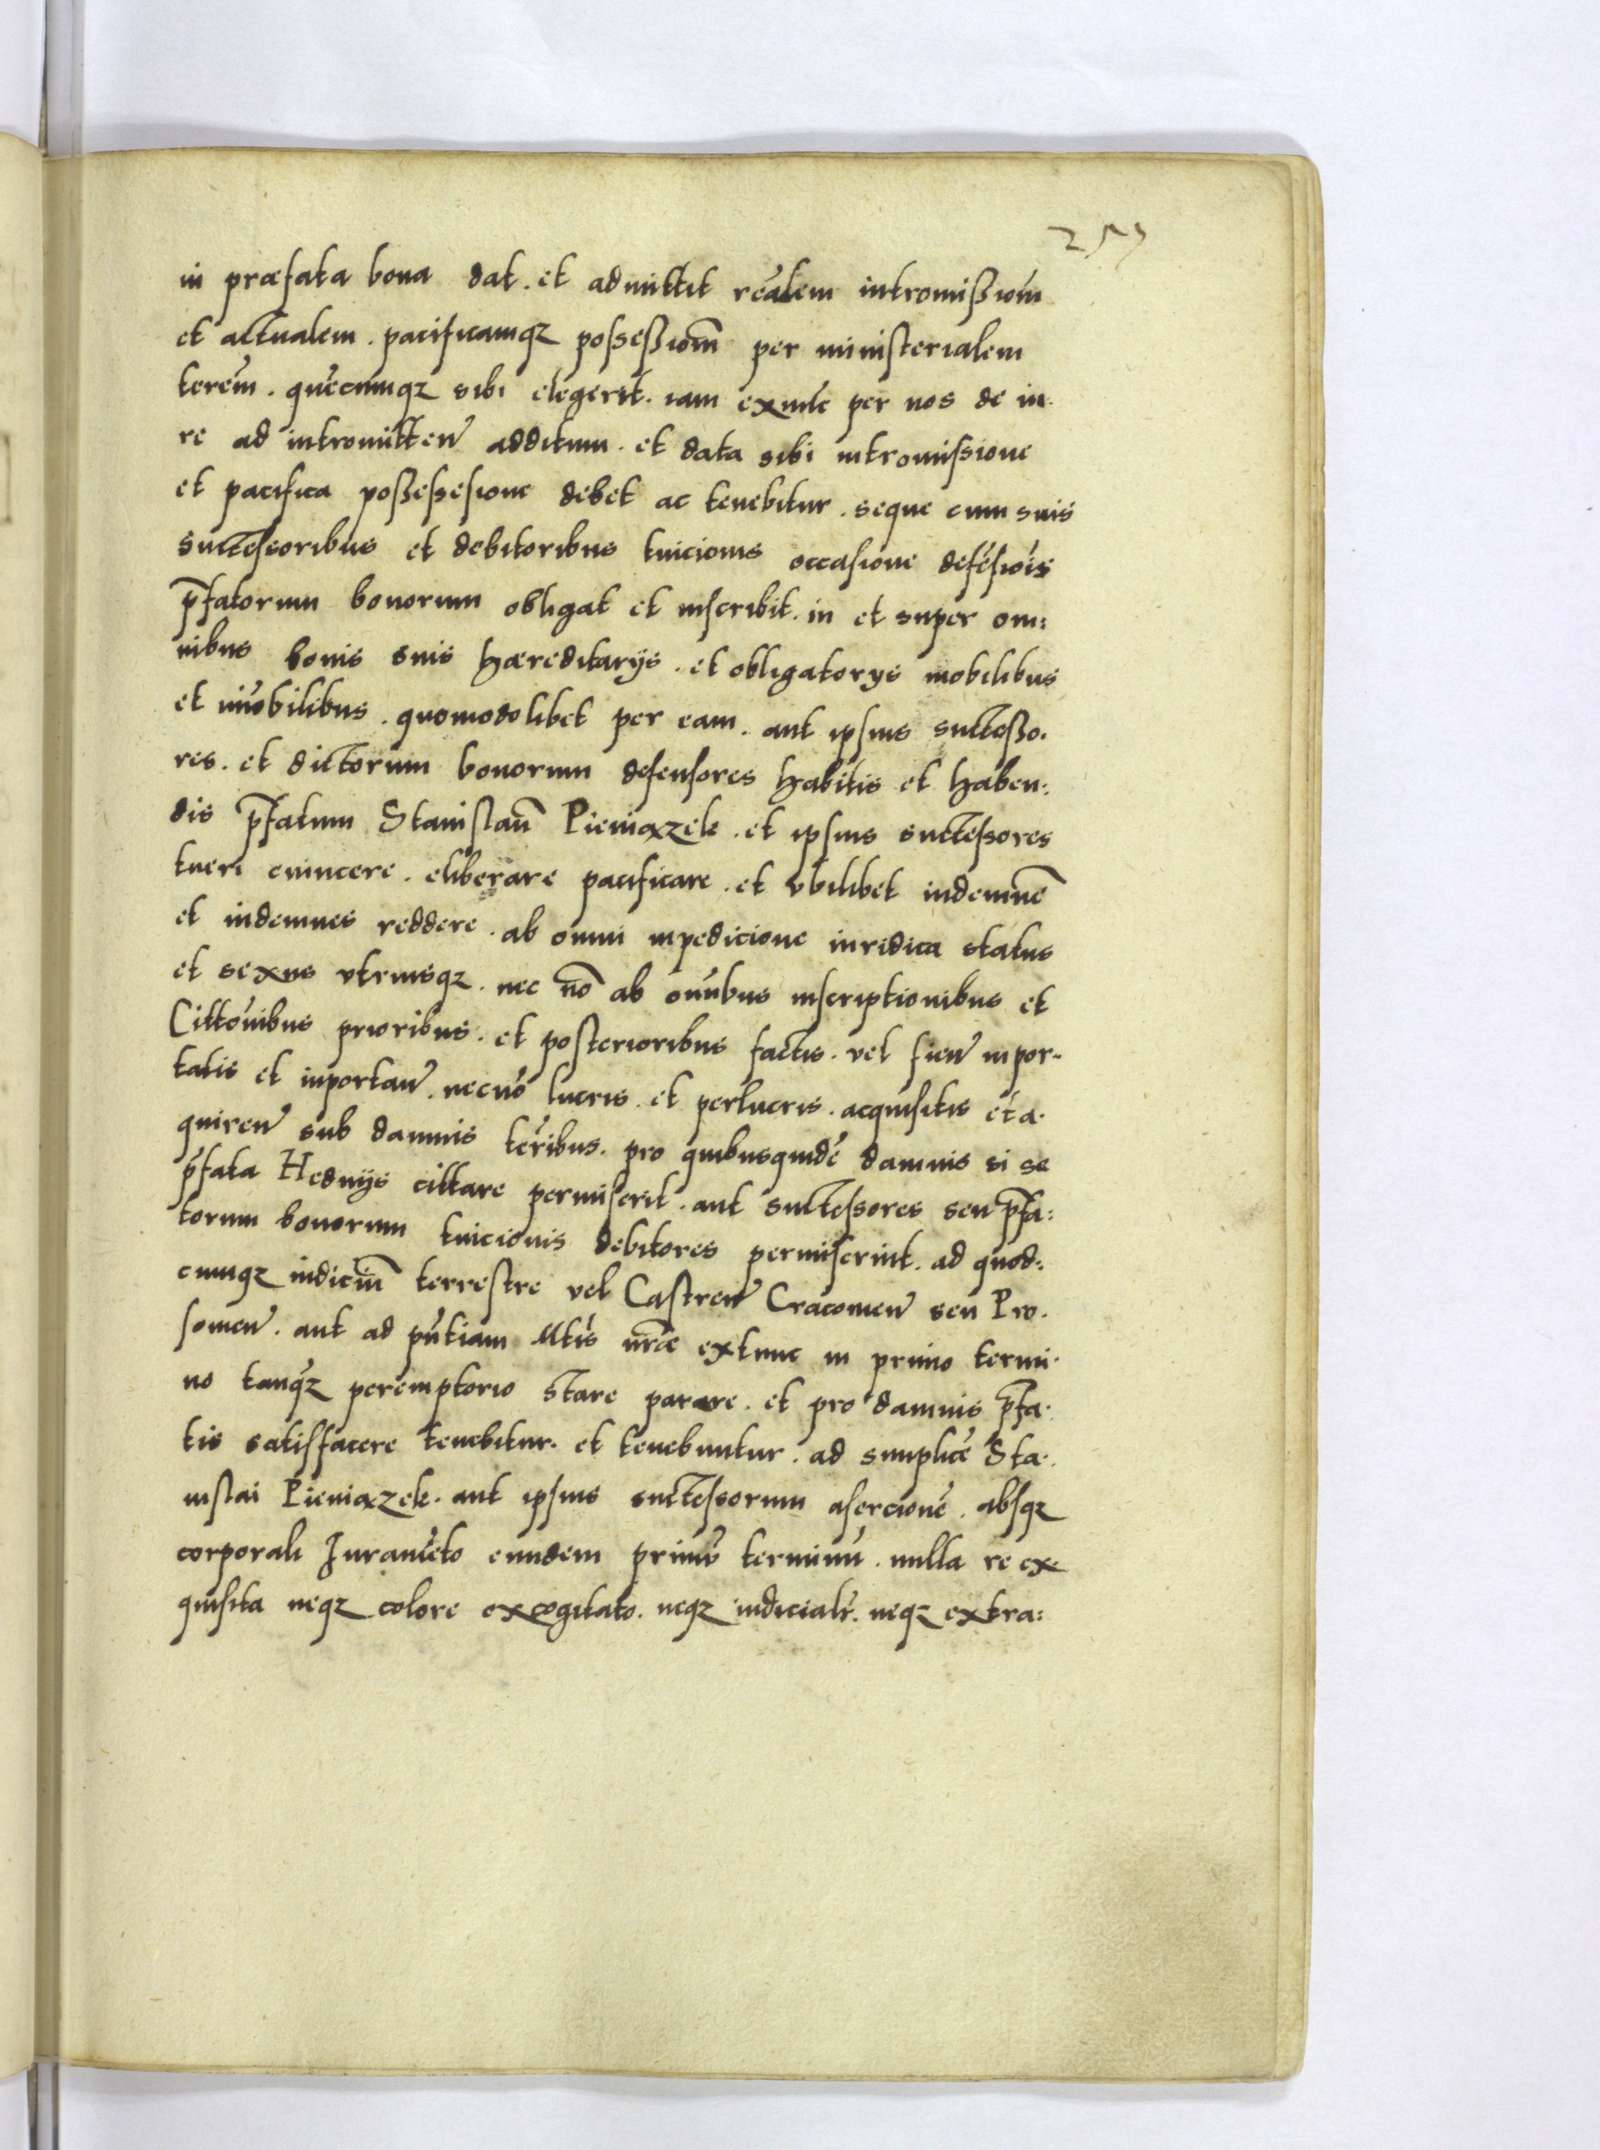 in præfata bona dat. et admittit reâlem intromißioēm
et actualem. pacificamqз possessioēm per ministerialem
terrēm. quēcumqз sibi elegerit. iam extūc per nos de iu.
re ad intromitten̄ additum. et data sibi intromissione
et pacifica poßessesione debet ac tenebitur. seque cum suis
successoribus et debitoribus tuicionis occasione defēsiōis
p̄fatorum bonorum obligat et inscribit. in et super om:
nibus bonis suis hæreditarijs. et obligatorys mobilibus
et im̄obilibus. quomodolibet per eam. aut ipsius successo.
res. et dictorum bonorum defensores habitis et haben:
dis p̄fatum Stanislaū Pieniazek. et ipsius successores
tueri euincere. eliberare pacificare. et vbilibet indemnē
et indemnes reddere. ab omni inpedicione iuridica status
et sexus vtriusqз. nec nō ab om̄ibus inscriptionibus et
Cittōnibus prioribus. et posterioribus factis. vel fien̄ inpor.
tatis et inportan̄. necnō lucris. et perlucris. acquisitis et a.
quiren̄ sub damnis terr̄ibus. pro quibusquidē damnis si se
p̄fata Heduijs cittare permiserit. aut successores seu p̄fa:
torum bonorum tuicionis debitores permiserint. ad quod:
cumqз iudiciūm terrestre vel Castren̄ Cracouien̄ seu Pro.
souien̄. aut ad pn̄tiam Mtis nr̄æ extunc in primo termi.
no tanqз peremptorio stare parare. et pro damnis p̄fa.
tis satisfacere tenebitur. et tenebuntur. ad simplicē Sta.
nislai Pieniazek. aut ipsius successorum asercionē. absqз
corporali Iuramēto eundem primū terminū. nulla re ex
quisita neqз colore excogitato. neqз iudicialr̄. neqз extra: